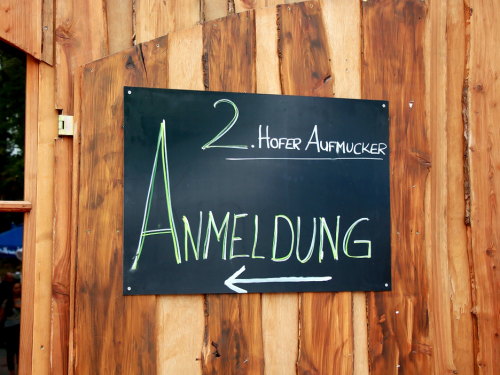 2. HOFER AUFMUCKER
ANMELDUNG